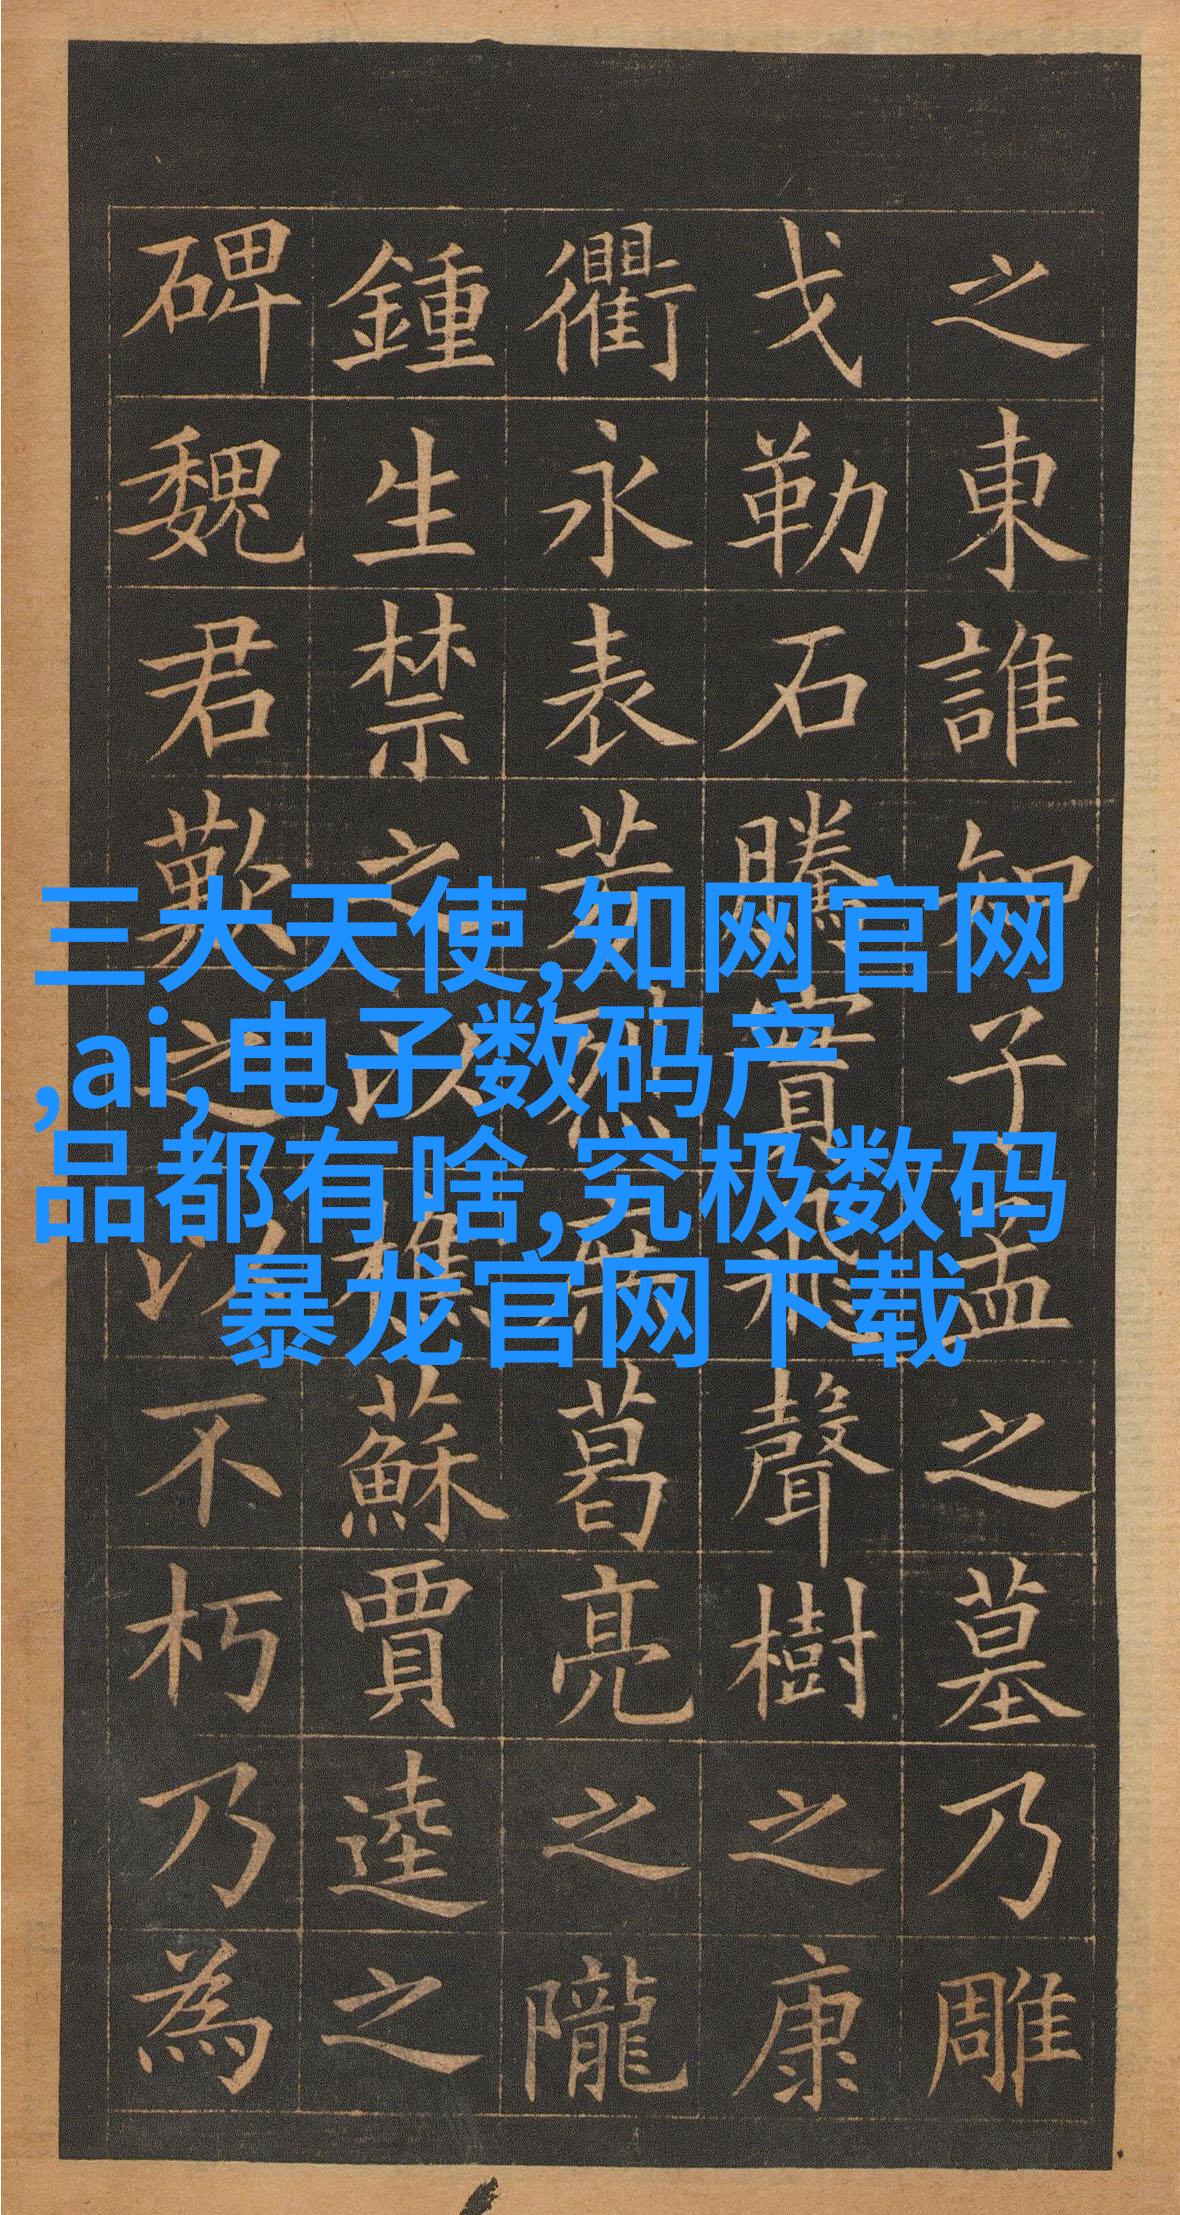 三大天使,知网官网
,ai,电子数码产
品都有啥,究极数码
暴龙官网下载
之東誰知子孟之墓乃雕
戈勒石騰實飛聲樹之康
衢永表芳烈葛亮之隴
鍾生禁之以樵蘇賈逵之
碑魏君歎之以不朽乃為